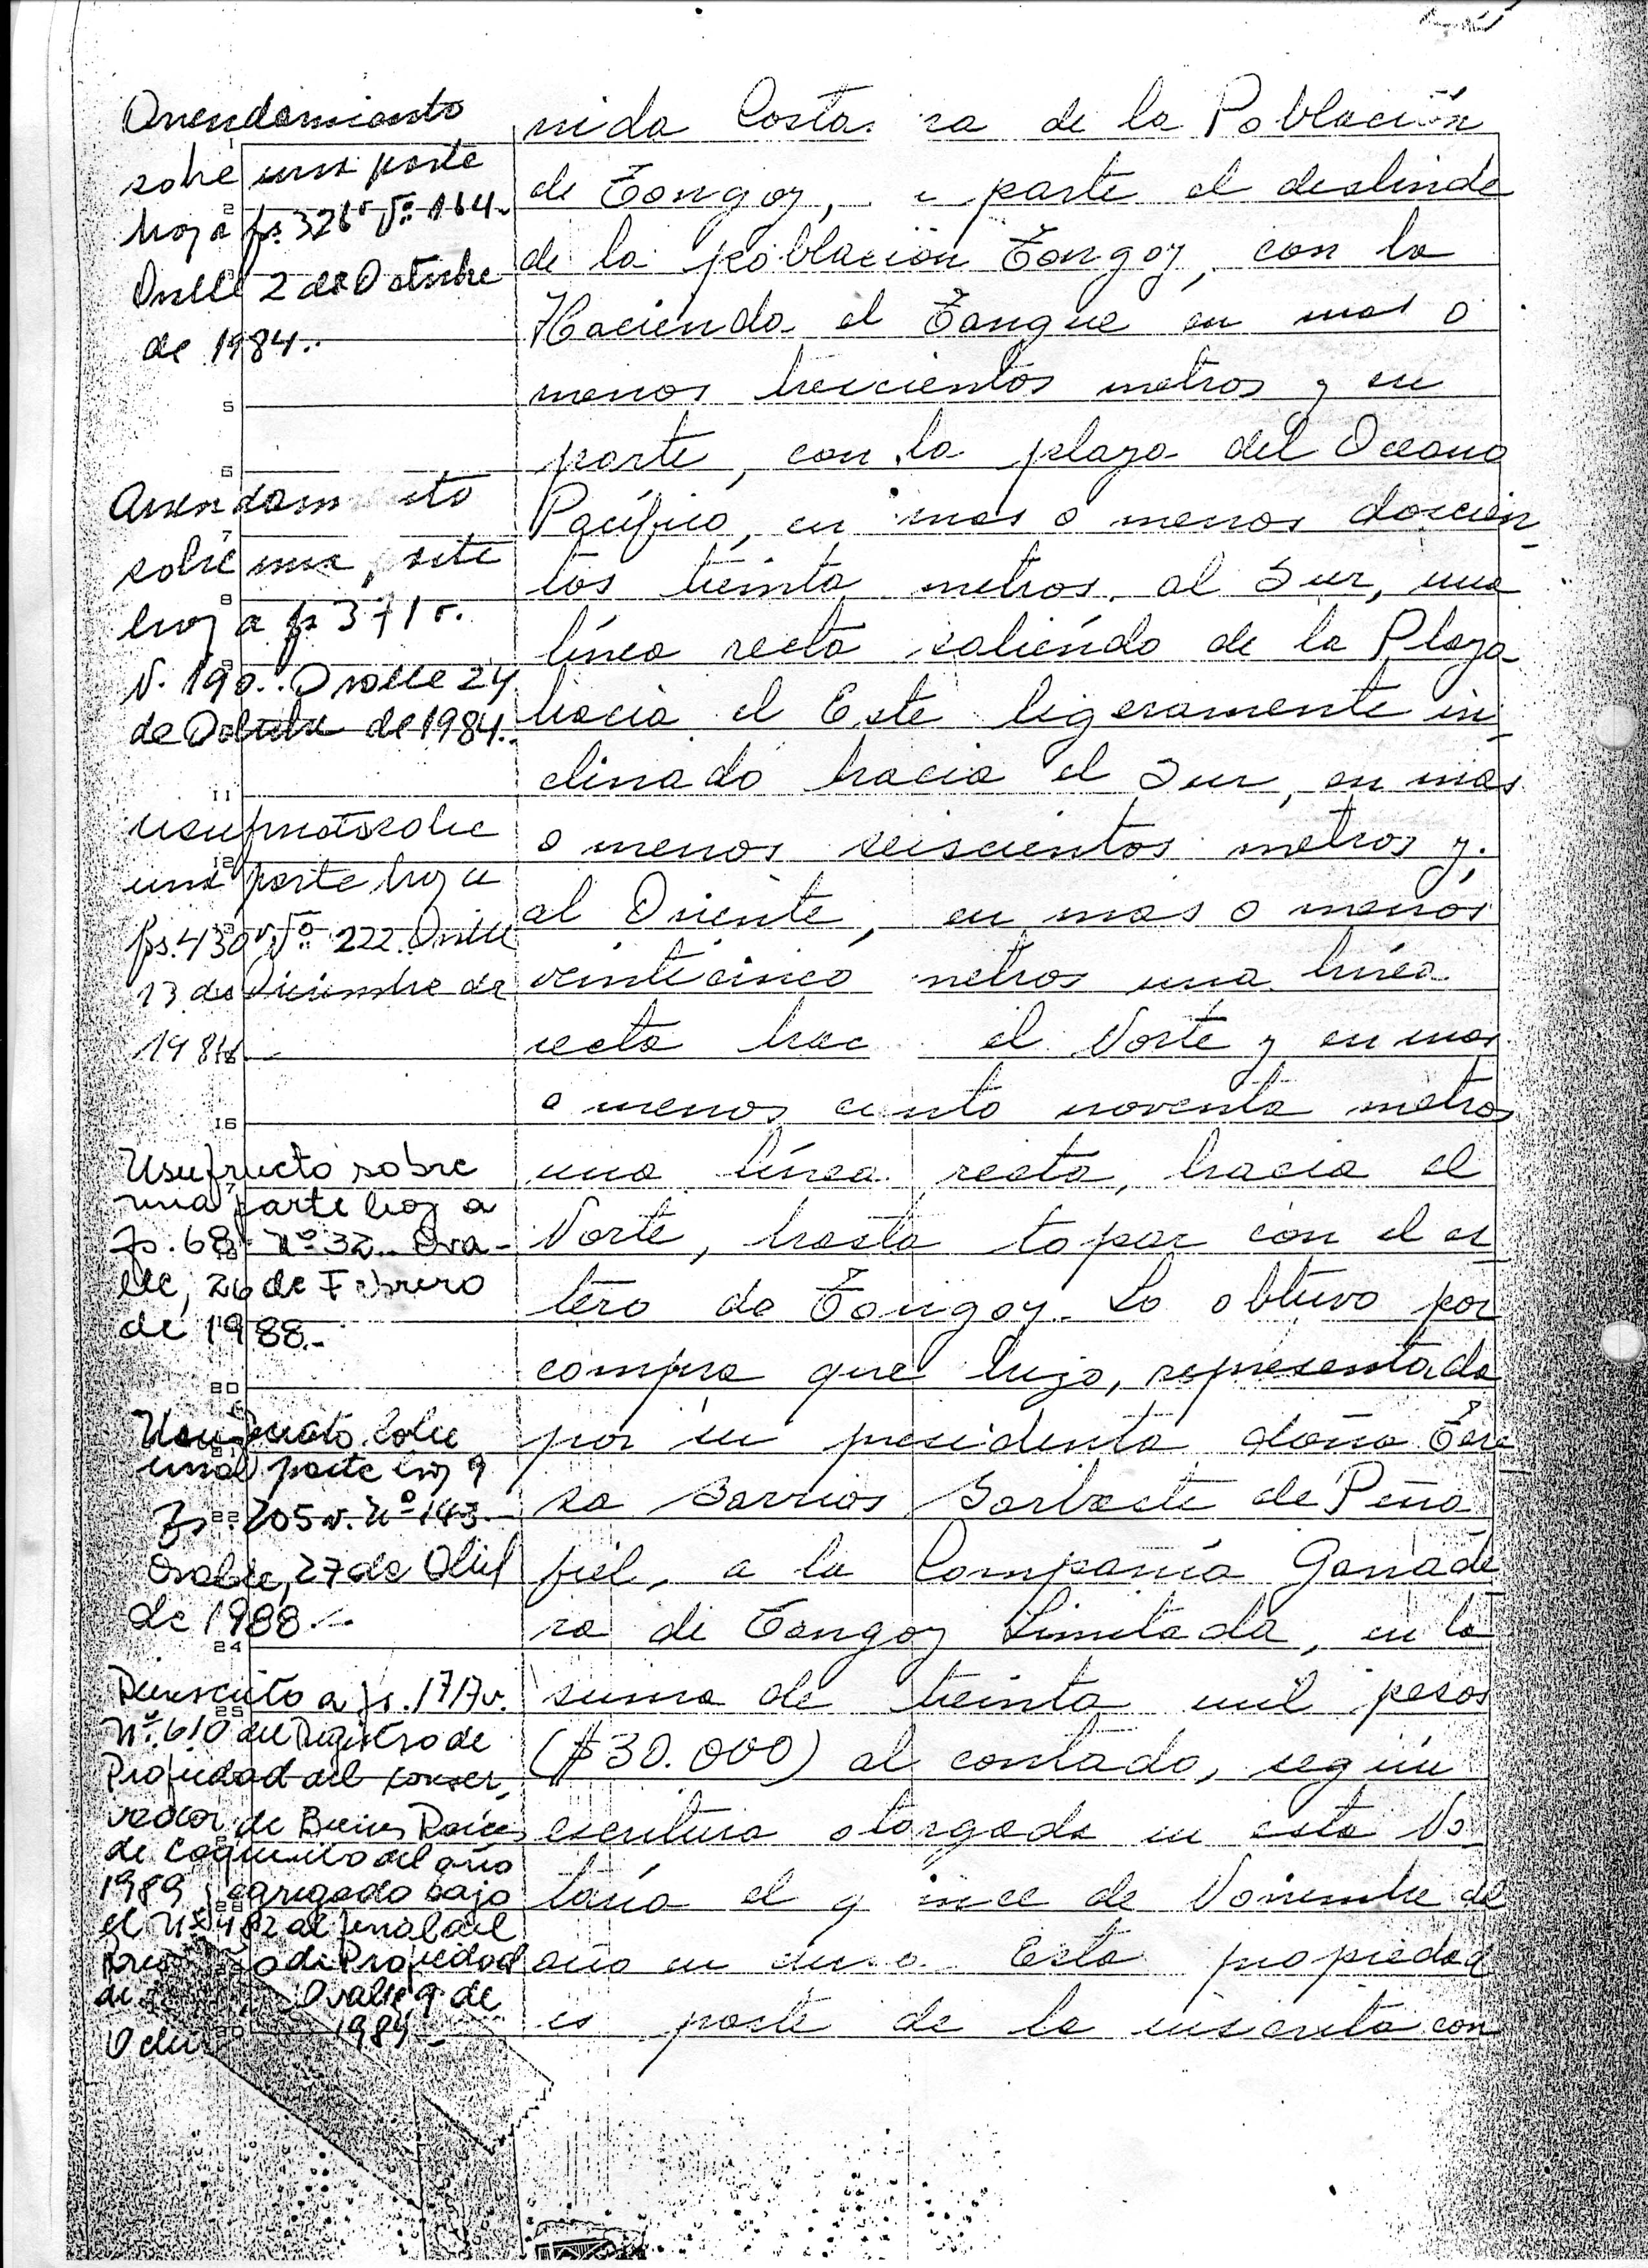 Arrendamiento
sobre una parte
hoy a fs. 326v Nº 164.
Ovalle 2 de Octubre
de 1984.
Arrendam to
sobre una parte
hoy a fs 371v.
N. 190. Ovalle 24
de Octubre de 1984.
Usufructo sobre
una parte hoy a
fs. 430v Nº 222. Ovalle
13 de Diciembre de
1984
Usufructo sobre
una parte hoy a
fs. 68 Nº 32. Ova-
lle, 26 de Febrero
de 1988.-
Usufructo sobre
una parte hoy a
fs. 205v. Nº 143.-
Ovalle, 27 de Abril
de 1988.-
Reinscrito a fs. 1717v.
Nº 610 del Registro de
Propiedad del Conser-
vador de Bienes Raíces
de Coquimbo del año
1989 agregado bajo
el Nº 482 al final del
de Propiedad
de Ovalle, 9 de
1989.-
nida Costa ra de la Población
de Tongoy, parte el deslinde
de la población Tongoy, con la
Hacienda el Tangue en mas o
menos trescientos metros y en
parte, con la playa del Oceano
Pacífico, en mas o menos doscien-
tos treinta metros. al Sur, una
línea recta saliendo de la Playa
hacia el Este ligeramente in-
clinado hacia el Sur, en mas
o menos seiscientos metros y;
al Oriente, en mas o menos
veinticinco metros una línea
recta hac el Norte y en mas
o menos ciento noventa metros
una línea recta, hacia el
Norte, hasta topar con el es-
tero de Tongoy. Lo obtuvo por
compra que hizo, representada
por su presidenta doña Tere-
sa Barrios de Peña-
fiel, a la Compañía Ganade-
ra de Tongoy Limitada, en la
suma de treinta mil pesos
($30.000) al contado, según
escritura otorgada en esta No-
taría el quince de Noviembre del
año en curso. Esta propiedad
es parte de la inscrita con